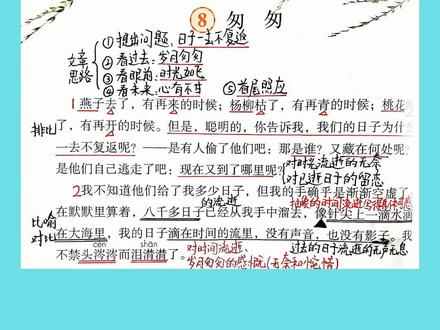 8 匆匆
文章思路
①提出问题，日子一去不复返
②看过去：岁月匆匆
③看眼前：时光如飞
④看未来：心有不甘
⑤首尾照应
1燕子去了，有再来的时候；杨柳枯了，有再青的时候；桃花
排比
了，有再开的时候。但是，聪明的，你告诉我，我们的日子为什
一去不复返呢？——是有人偷了他们吧：那是谁？又藏在何处呢？
是他们自己逃走了吧：现在又到了哪里呢？
对时光流逝的无奈
对已逝日子的留恋
2我不知道他们给了我多少日子，但我的手确乎是渐渐空虚了
的流逝
抽象的时间流逝写得具体可感
在默默里算着，八千多日子已经从我手中溜去，像针尖上一滴水滴
比喻
对比
在大海里，我的日子滴在时间的流里，没有声音，也没有影子。我
cén shān
对时间流逝、
过去的日子流逝的无声无息
不禁头涔涔而泪潸潸了。
岁月匆匆的感慨(无奈和惋惜)